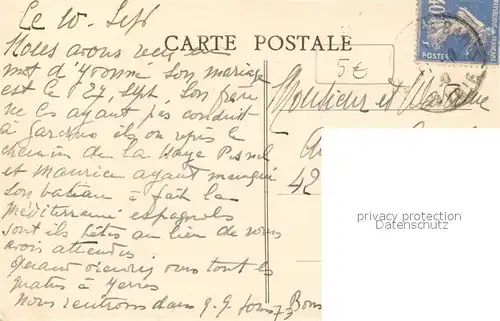 Le 10 Sept
CARTE POSTALE
Nous avons reçu un
mot d'Yvonne son mariage
est le 27 Sept son frère
ne les ayant pas conduit
à ils on repris le
chemin de la Haye Pesnel
et Maurice ayant manqué
son bateau à fait la
Méditerranée espagnole
sont ils bêtes au lieu de vous
avoir attendus.
Quand viendrez vous tout les
quatre à Yerres
Nous rentrons dans q.q. jours Bons
5€
Monsieur et Madame
42
POSTES
privacy protection
Datenschutz